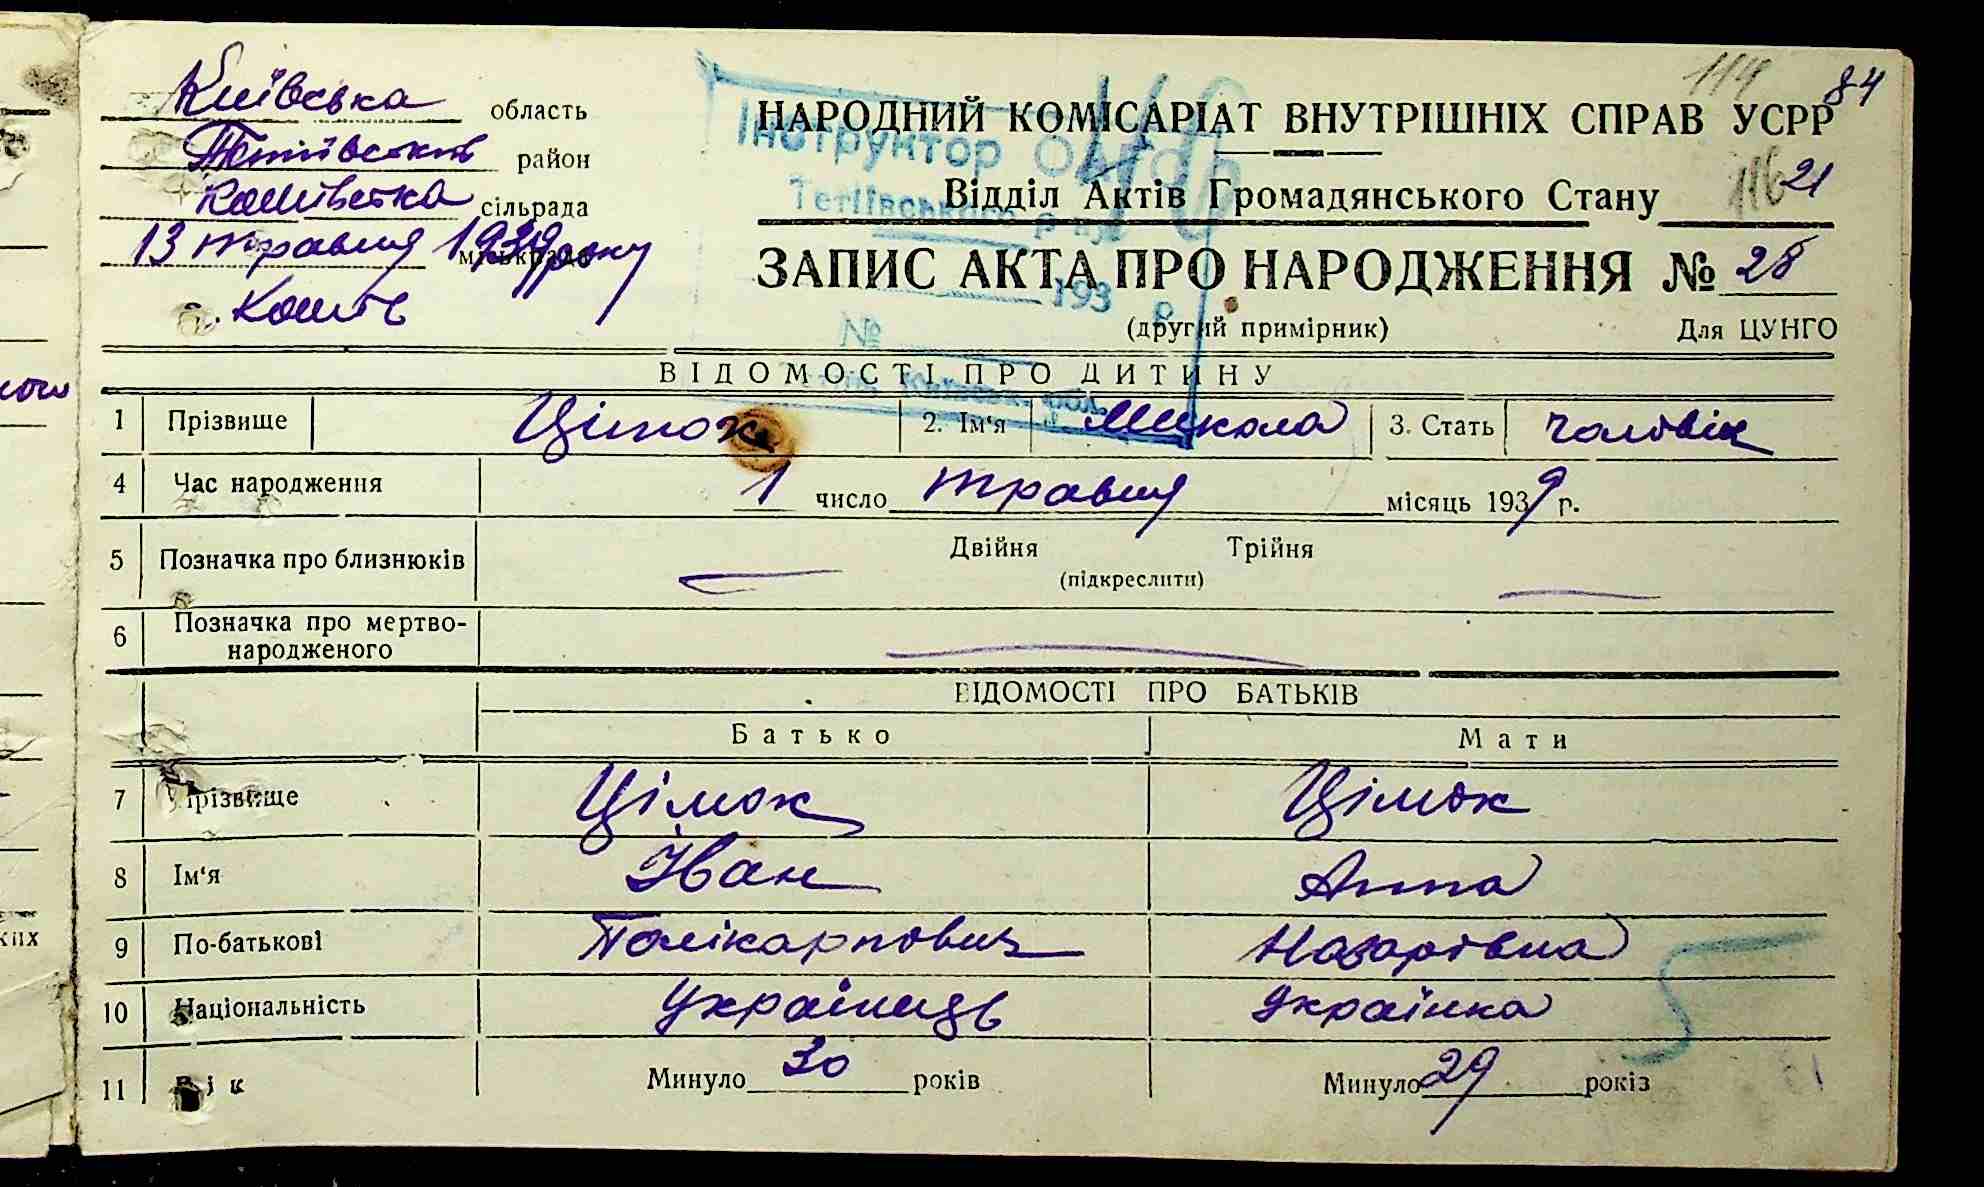 Київська область
Тетіївський район
Кашівська сільрада
13 травня 1939 року міськрада
с. Кошів
114 84
НАРОДНИЙ КОМІСАРІАТ ВНУТРІШНІХ СПРАВ УСРР
Інструктор
Відділ Актів Громадянського Стану
116 21
Тетіївського р-ну
ЗАПИС АКТА ПРО НАРОДЖЕННЯ № 28
193 р.
(другий примірник) Для ЦУНГО
№
ВІДОМОСТІ ПРО ДИТИНУ
1 Прізвище Цімок 2. Ім'я Микола 3. Стать чоловік
4 Час народження 1 число травня місяць 1939 р.
5 Позначка про близнюків Двійня Трійня
(підкреслити)
6 Позначка про мертво-
народженого
ВІДОМОСТІ ПРО БАТЬКІВ
Батько Мати
7 Прізвище Цімок Цімок
8 Ім'я Іван Анна
9 По-батькові Полікарпович Назарівна
10 Національність Українець Українка
5
11 Вік Минуло 30 років Минуло 29 років